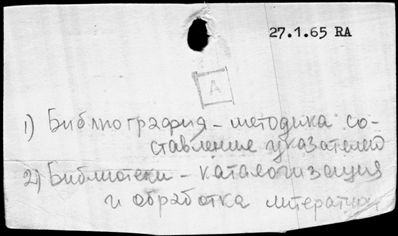 27.1.65 RA
A
1) Библиография - методика со-
ставление указателей
2) Библиотеки - каталогизация
и обработка литератур